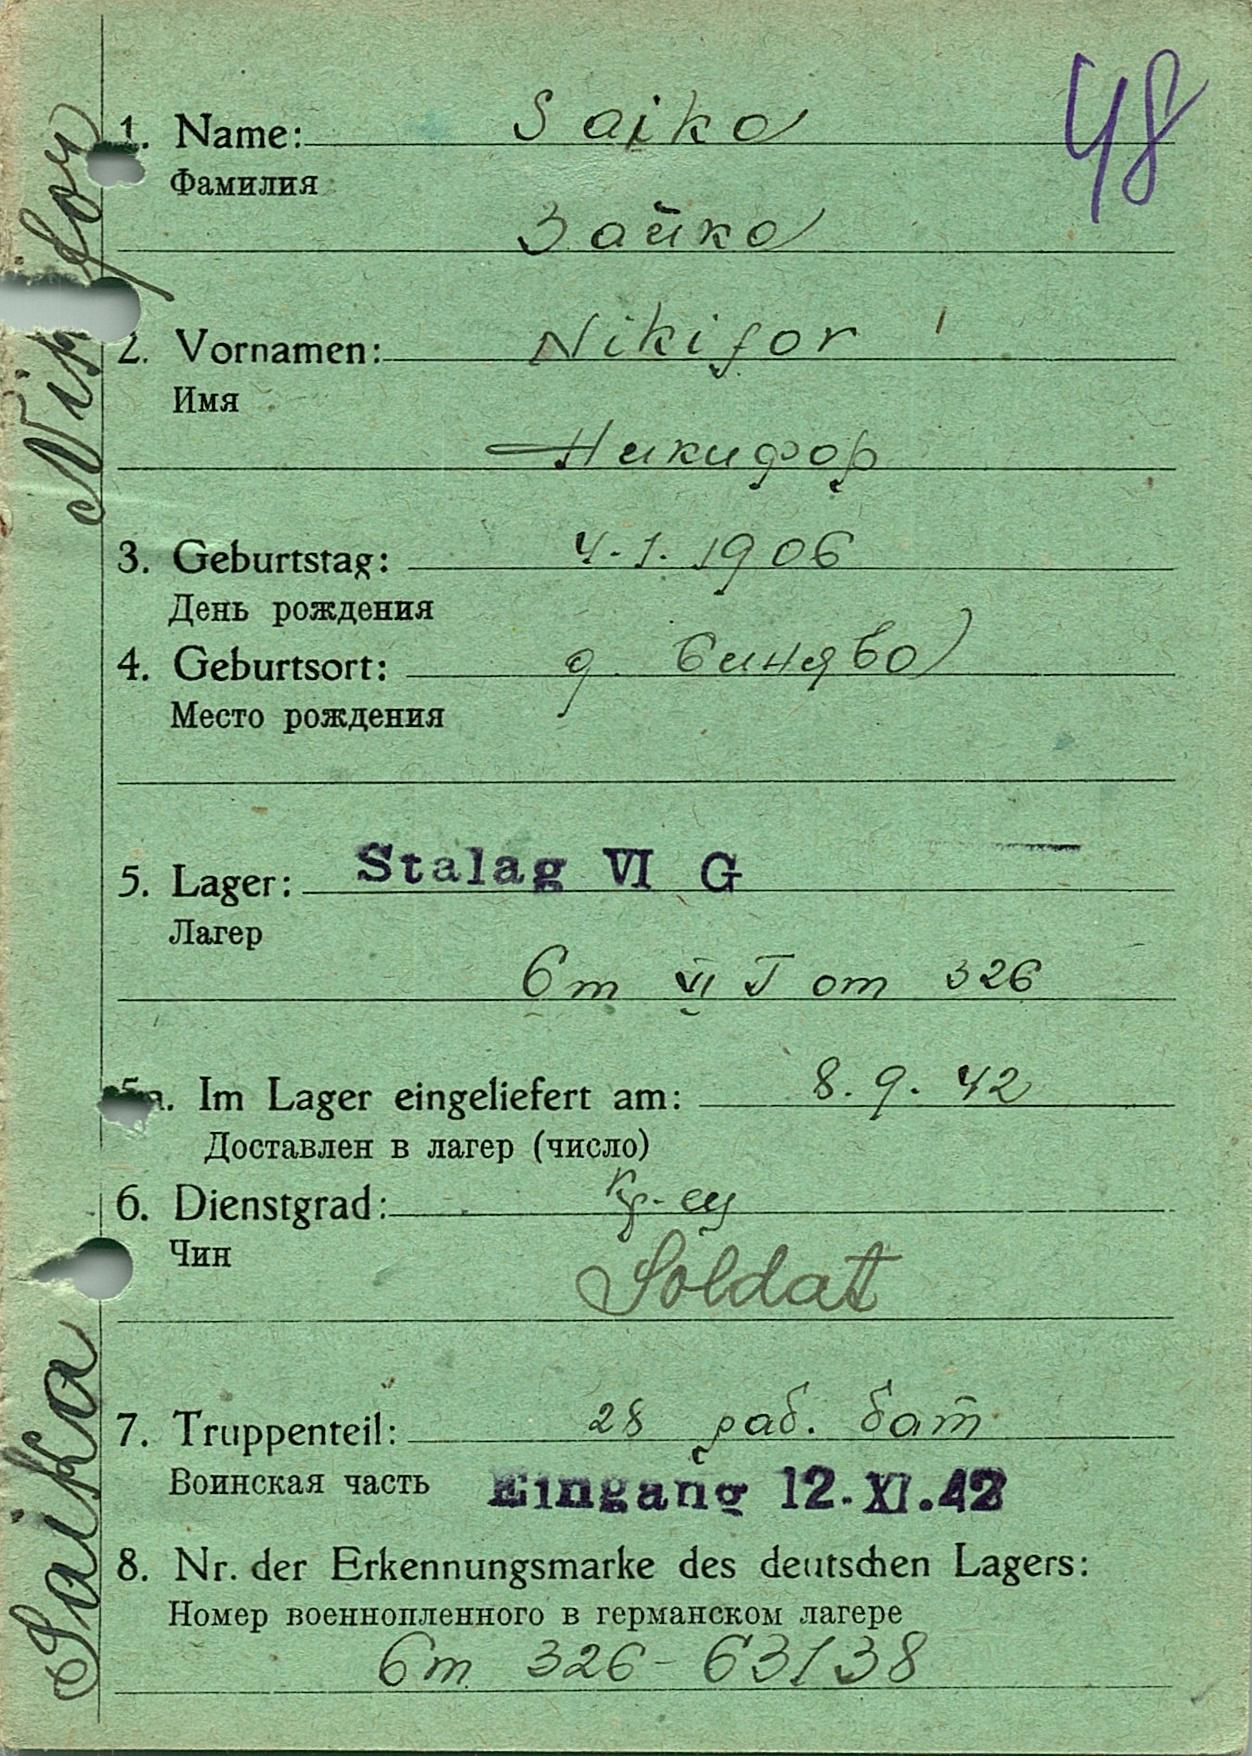 48
1. Name: Saiko
Фамилия
Зайко
2. Vornamen: Nikifor
Имя
Никифор
3. Geburtstag: 4.1.1906
День рождения
4. Geburtsort: д. Синяво
Место рождения
5. Lager: Stalag VI G
Лагер
Ст VI Г от 326
5a. Im Lager eingeliefert am: 8.9.42
Доставлен в лагер (число)
6. Dienstgrad: кр-ец
Чин
Soldat
7. Truppenteil: 28 раб. бат
Воинская часть Eingang 12.XI.42
8. Nr. der Erkennungsmarke des deutschen Lagers:
Номер военнопленного в германском лагере
Ст 326-63138
Saika Nikifor